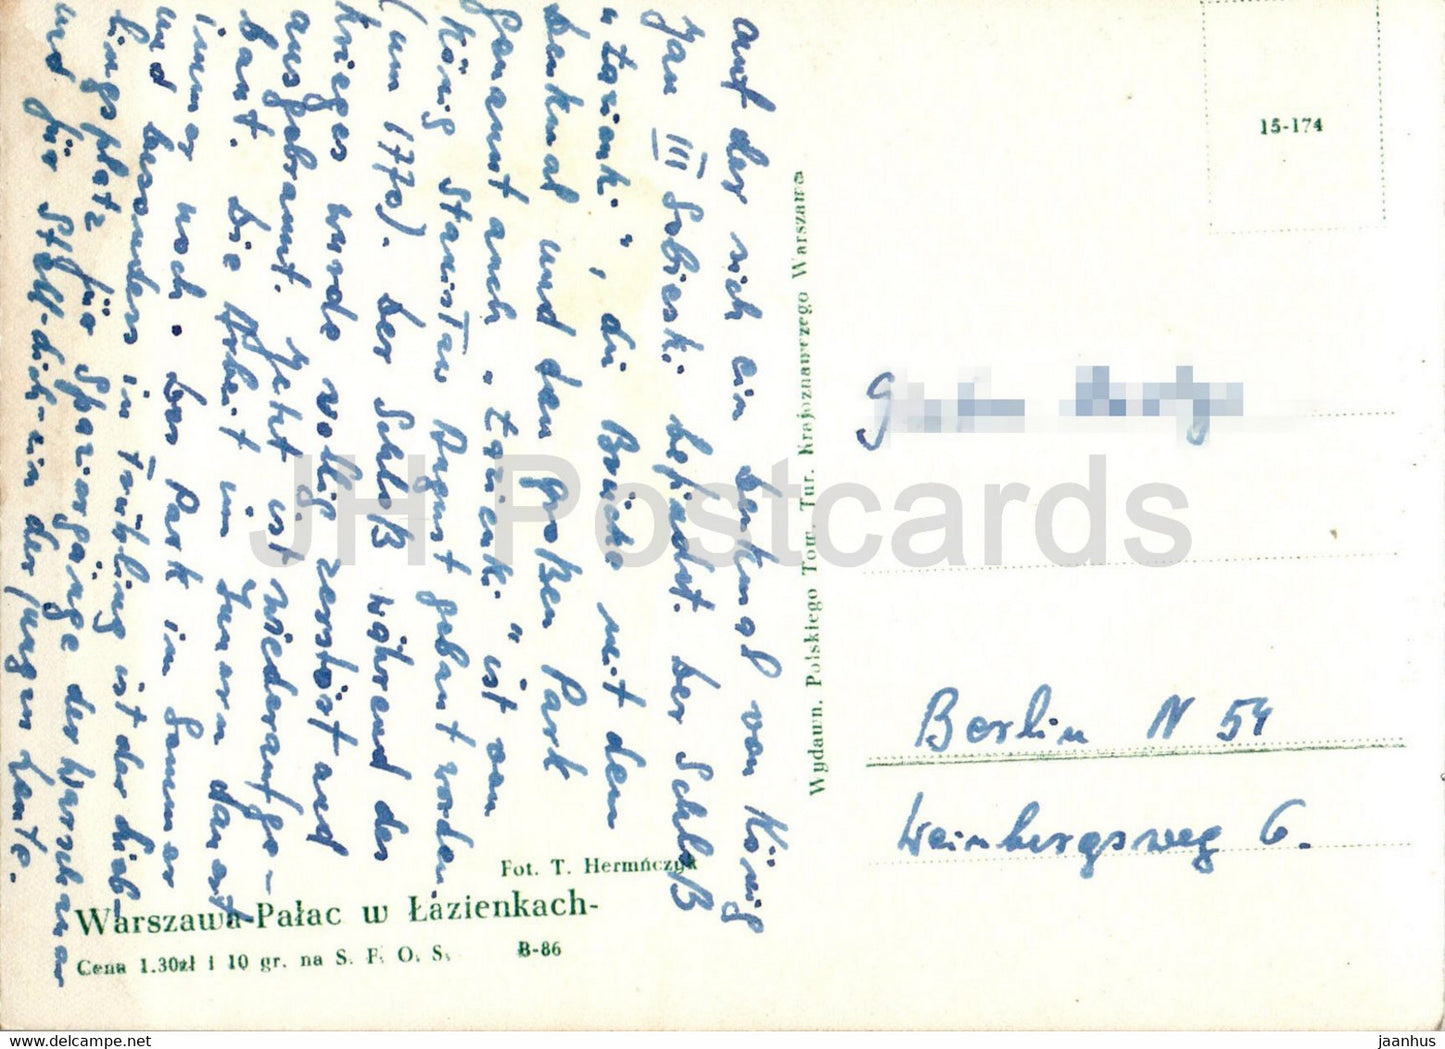 auf der sich ein Denkmal von König
Jan III Sobieski befindet. Der Schloß
"Łazienki", die Brücke mit dem
Denkmal und den großen Park
genannt auch "Łazienki" ist von
König Stanisław August gebaut worden
(um 1770). Der Schloß während des
Krieges wurde vollig zerstört and
ausgebrannt. Jetzt ist wiederaufge-
baut. Die Arbeit im Innern dauert
immer noch. Der Park im Sommer
und besonders in Frühling ist der Lieb-
lingsplatz für Spaziergänge der Warschauer
und für Stell-dich-ein der jungen Leute.
Fot. T. Hermńczyk
Warszawa-Pałac w Łazienkach-
Cena 1.30zł i 10 gr. na S. F. O. S. B-86
Wydawn. Polskiego Tow. Tur. Krajoznawczego Warszawa
15-174
Berlin N 54
Weinbergsweg 6.
JH Postcards
Warszawa - Palac w Lazienkach - Warsaw - old postcard - Poland - used | Europe - Poland :: Warszawa | JH Postcards - www.delcampe.net
jaanhus